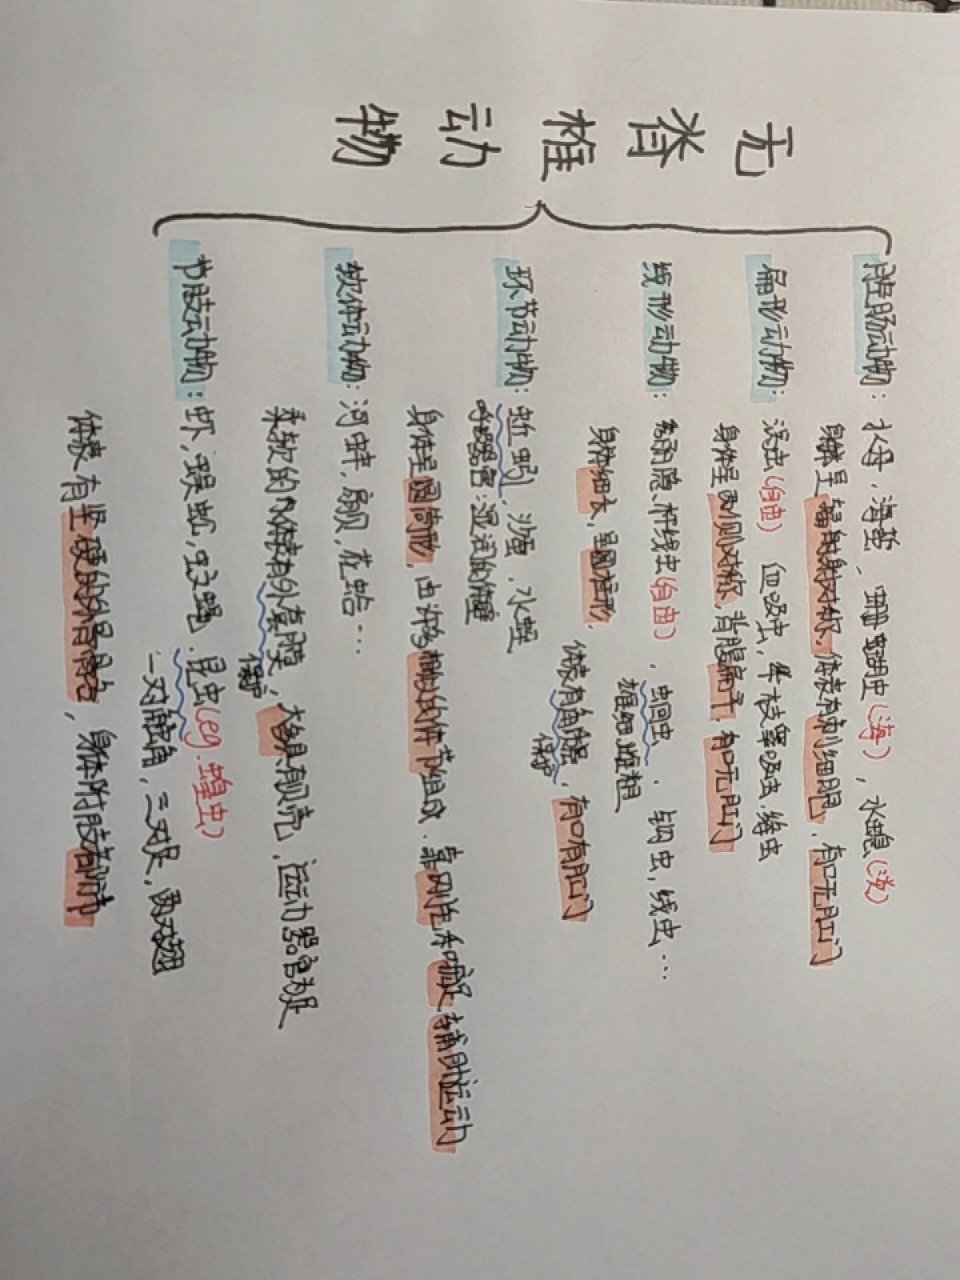 无脊椎动物
腔肠动物：水母、海蜇、珊瑚虫(海)，水螅(淡)
身体呈辐射对称，体表有刺细胞，有口无肛门
扁形动物：涡虫(自由) 血吸虫，华枝睾吸虫，绦虫
身体呈两侧对称，背腹扁平，有口无肛门
线形动物：秀丽隐杆线虫(自由)、蛔虫、钩虫，线虫…
雄细雌粗
身体细长，呈圆柱形，
体表有角质层，有口有肛门
保护
环节动物：蚯蚓，沙蚕，水蛭
呼吸器官：湿润的体壁
身体呈圆筒形，由许多相似的体节组成，靠刚毛和疣足辅助运动
软体动物：河蚌，扇贝，花蛤…
柔软的身体表有外套膜，大多具有贝壳，运动器官为足
保护
节肢动物：虾，蜈蚣，蚊蝇，昆虫(eg.蝗虫)
一对触角，三对足，两对翅
体表有坚硬的外骨骼，身体附肢都分节